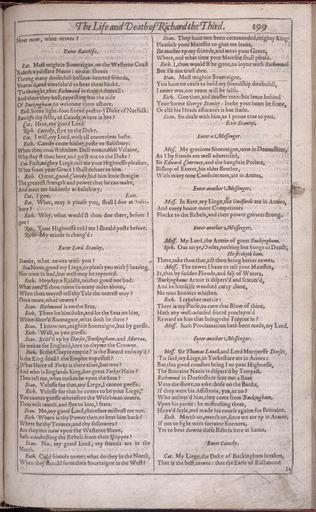 The Life and Death of Richard the Third. 199
How now, what newes?
Enter Ratcliffe.
Rat. Most mightie Soueraigne, on the Westerne Coast
Rideth a puissant Nauie: to our Shores
Throng many doubtfull hollow-hearted friends,
Vnarm'd, and vnresolu'd to beat them backe.
'Tis thought, that Richmond is their Admirall:
And there they hull, expecting but the aide
Of Buckingham, to welcome them ashore.
Rich. Some light-foot friend post to ye Duke of Norfolk:
Ratcliffe thy selfe, or Catesby, where is hee?
Cat. Here, my good Lord.
Rich. Catesby, flye to the Duke.
Cat. I will, my Lord, with all conuenient haste.
Rich. Catesby come hither, poste to Salisbury:
When thou com'st thither: Dull vnmindfull Villaine,
Why stay'st thou here, and go'st not to the Duke?
Cat. First, mighty Liege, tell me your Highnesse pleasure,
What from your Grace I shall deliuer to him.
Rich. O true, good Catesby, bid him leuie straight
The greatest strength and power that he can make,
And meet me suddenly at Salisbury.
Cat. I goe. Exit.
Rat. What, may it please you, shall I doe at Salisbury?
Rich. Why, what would'st thou doe there, before I
goe?
Rat. Your Highnesse told me I should poste before.
Rich. My minde is chang'd:
Enter Lord Stanley.
Stanley, what newes with you?
Sta. None, good my Liege, to please you with ye hearing,
Nor none so bad, but well may be reported.
Rich. Hoyday, a Riddle, neither good nor bad:
Once more, what newes?
Stan. Richmond is on the Seas.
Rich. There let him sinke, and be the Seas on him,
White-liuer'd Runnagate, what doth he there?
Stan. I know not, mightie Soueraigne, but by guesse.
Rich. Well, as you guesse.
Stan. Stirr'd vp by Dorset, Buckingham, and Morton,
He makes for England, here to clayme the Crowne.
Rich. Is the Chayre emptie? is the Sword vnsway'd?
Is the King dead? the Empire vnpossest?
What Heire of Yorke is there aliue, but wee?
And who is Englands King, but great Yorkes Heire?
Then tell me, what makes he vpon the Seas?
Stan. Vnlesse for that, my Liege, I cannot guesse.
Rich. Vnlesse for that he comes to be your Liege,
You cannot guesse wherefore the Welchman comes.
Thou wilt reuolt, and flye to him, I feare.
Stan. No, my good Lord, therefore mistrust me not.
Rich. Where is thy Power then, to beat him back?
Where be thy Tenants, and thy followers?
Are they not now vpon the Westerne Shore,
Safe-conducting the Rebels from their Shippes?
Stan. No, my good Lord, my friends are in the
North.
Rich. Cold friends to me: what do they in the North,
When they should serue their Soueraigne in the West?
Stan. They haue not been commanded, mighty King:
Pleaseth your Maiestie to giue me leaue,
Ile muster vp my friends, and meet your Grace,
Where, and what time your Maiestie shall please.
Rich. I, thou would'st be gone, to ioyne with Richmond:
But Ile not trust thee.
Stan. Most mightie Soueraigne,
You haue no cause to hold my friendship doubtfull,
I neuer was, nor neuer will be false.
Rich. Goe then, and muster men: but leaue behind
Your Sonne George Stanley: looke your heart be firme,
Or else his Heads assurance is but fraile.
Stan. So deale with him, as I proue true to you.
Exit Stanley.
Enter a Messenger.
Mess. My gracious Soueraigne, now in Deuonshire,
As I by friends am well aduertised,
Bishop of Exeter, his elder Brother,
With many moe Confederates, are in Armes.
Enter another Messenger.
Mess. In Kent, my Liege, the Guilfords are in Armes,
And euery houre more Competitors
Flocke to the Rebels, and their power growes strong.
Enter another Messenger.
Mess. My Lord, the Armie of great Buckingham.
Rich. Out on ye, Owles, nothing but Songs of Death,
He striketh him.
There, take thou that, till thou bring better newes.
Mess. The newes I haue to tell your Maiestie,
Is, that by sudden Floods, and fall of Waters,
Buckinghams Armie is dispers'd and scatter'd,
And he himselfe wandred away alone,
No man knowes whither.
Rich. I cry thee mercie:
There is my Purse, to cure that Blow of thine.
Hath any well-aduised friend proclaym'd
Reward to him that brings the Traytor in?
Mess. Such Proclamation hath been made, my Lord.
Enter another Messenger.
Mess. Sir Thomas Louell, and Lord Marquesse Dorset,
'Tis said, my Liege, in Yorkeshire are in Armes:
But this good comfort bring I to your Highnesse,
The Brittaine Nauie is dispers'd by Tempest.
Richmond in Dorsetshire sent out a Boat
Vnto the shore, to aske those on the Banks,
If they were his Assistants, yea, or no?
Who answer'd him, they came from Buckingham,
Vpon his partie: he mistrusting them,
Hoys'd sayle, and made his course againe for Brittaine.
Rich. March on, march on, since we are vp in Armes,
If not to fight with forraine Enemies,
Yet to beat downe these Rebels here at home.
Enter Catesby.
Cat. My Liege, the Duke of Buckingham is taken,
That is the best newes: that the Earle of Richmond
Is